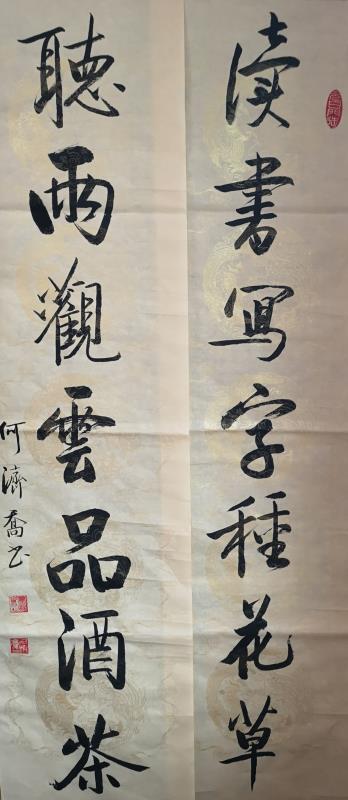 读書寫字種花草
聽雨觀雲品酒茶
何濟喬书